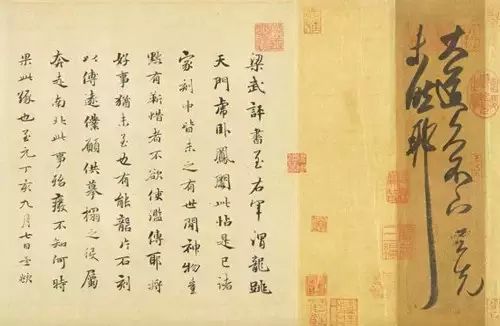 大道久不下与先
未然耶
梁武評書至右軍謂龍跳
天門虎卧鳳閣此帖是已諸
家刻中皆未之有世間神物豈
有靳惜者不欲使濫傳耶將
好事猶未至也有能礱片石刻
以傳遠僕願供摹搨之役屬
奔走南北此事殆廢不知何時
果此緣也至元丁亥九月七日孟頫